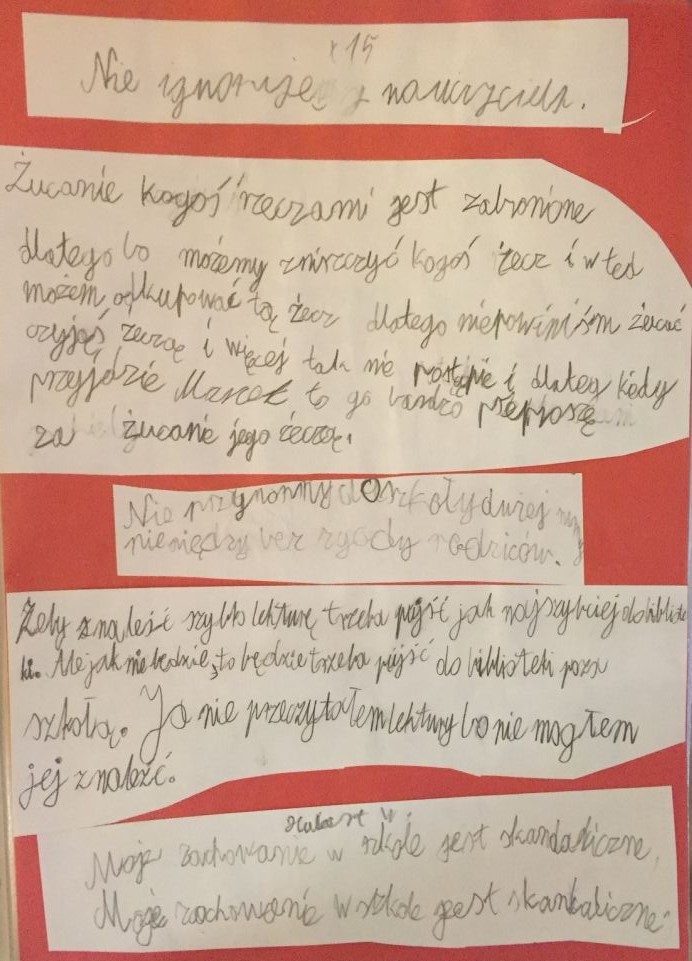 x15
Nie ignoruję nauczyciela.
Żucanie kogoś rzeczami jest zabronione
dlatego bo możemy zniszczyć kogoś żecz i wted
możem odkupować tą żecz dlatego niepowiniśm żucać
czyjąś żeczą i więcej tak nie postąpie i dlateg kiedy
przyjdzie Marek to go bardzo przeproszę
za żucanie jego żeczą.
Nie przynośmy do szkoły dużej
pieniędzy bez zgody rodziców.
Żeby znaleść szybko lekturę trzeba pujść jak najszybciej do bibliote
ki. Ale jak nie będzie, to będzie trzeba pujść do biblioteki poza
szkołą. Ja nie przeczytałem lektury bo nie mogłem
jej znaleźć.
Moje zachowanie w szkole jest skandaliczne.
Moje zachowanie w szkole jest skandaliczne